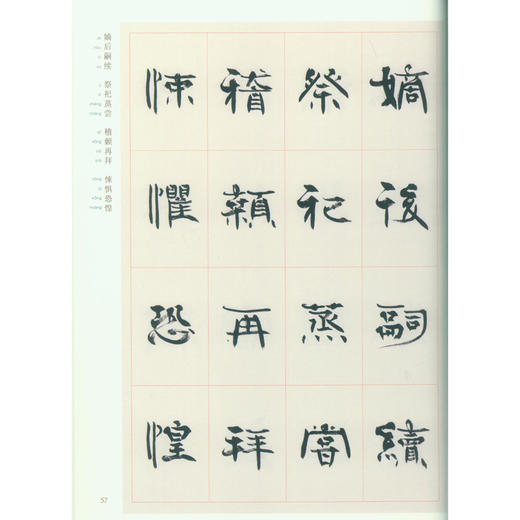 嫡後嗣續
祭祀蒸嘗
稽顙再拜
悚懼恐惶
嫡后嗣续 祭祀蒸尝 稽颡再拜 悚惧恐惶
57